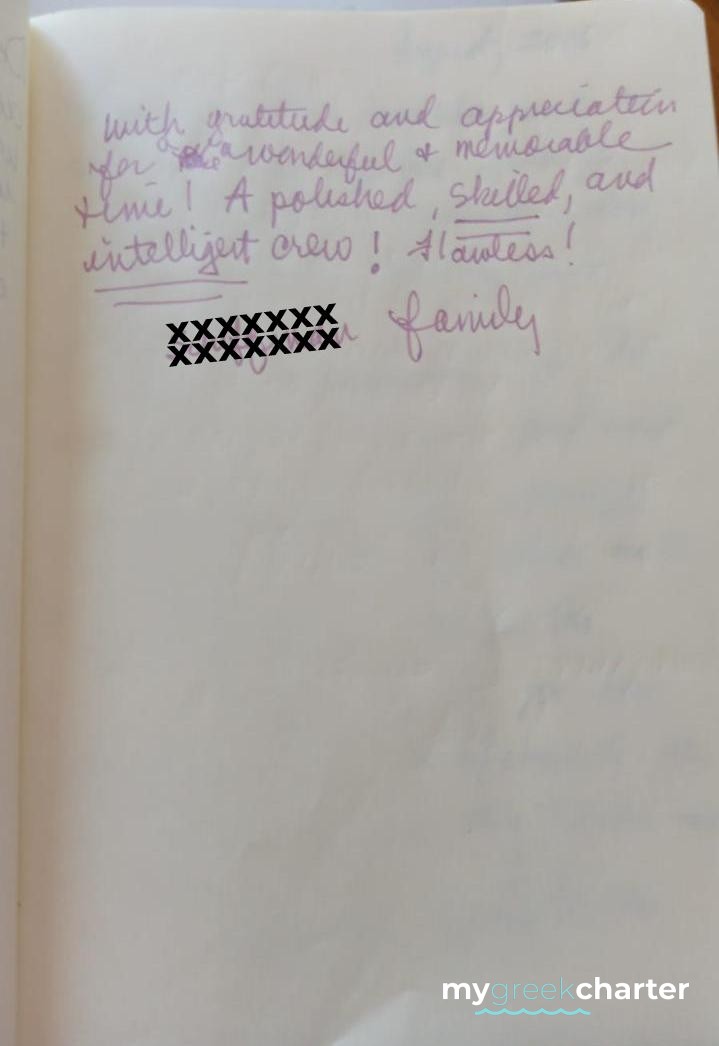 With gratitude and appreciation
for a wonderful & memorable
time! A polished, skilled, and
intelligent crew! Flawless!
XXXXXXX
XXXXXXX family
mygreekcharter